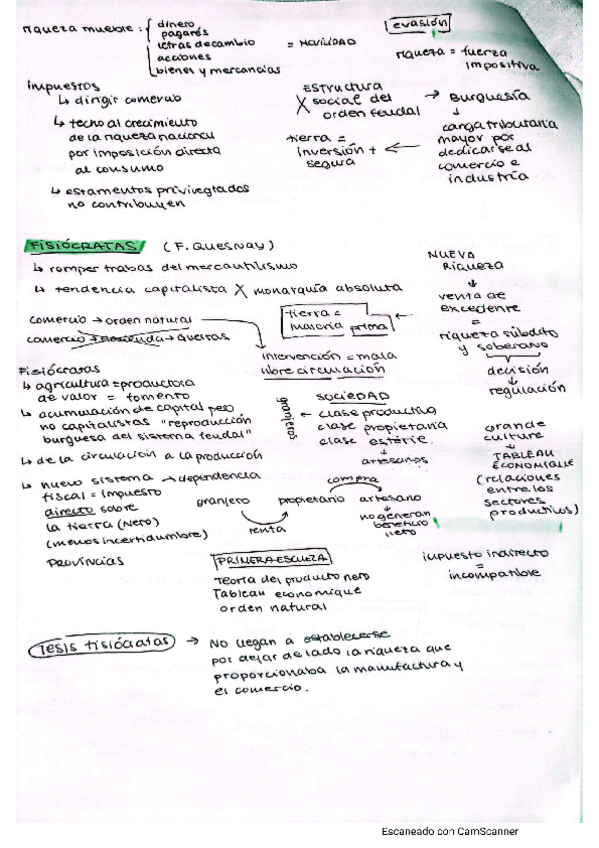 riqueza mueble:
dinero
pagarés
letras de cambio
acciones
bienes y mercancías
= MOVILIDAD
evasión
↓
riqueza = fuerza
impositiva
impuestos
↳ dirigir comercio
↳ techo al crecimiento
de la riqueza nacional
por imposición directa
al consumo
↳ estamentos privilegiados
no contribuyen
ESTRUCTURA
X social del
orden feudal
tierra =
inversión +
segura
→ BURGUESÍA
↓
carga tributaria
mayor por
dedicarse al
comercio e
industria
FISIÓCRATAS (F. QUESNAY)
↳ romper trabas del mercantilismo
↳ tendencia capitalista X monarquía absoluta
comercio → orden natural
comercio → → guerras
tierra =
materia prima
intervención = mala
libre circulación
NUEVA
Riqueza
↓
venta de
excedente
=
riqueza súbdito
y soberano
decisión
↓
regulación
Fisiócratas
↳ agricultura = productora
de valor = fomento
↳ acumulación de capital pero
no capitalistas "reproducción
burguesa del sistema feudal"
↳ de la circulación a la producción
↳ nuevo sistema → dependencia
fiscal = impuesto
directo sobre
la tierra (Neto)
(menos incertidumbre)
granjeros
SOCIEDAD
← clase productiva
clase propietaria
clase estéril
↓
artesanos
compra
granjero propietario artesano
renta
↓
no generan
beneficio
neto
grande
culture
↓
TABLEAU
ECONOMIQUE
(relaciones
entre los
sectores
productivos)
PROVINCIAS
PRIMERA ESCUELA
Teoría del producto neto
Tableau economique
orden natural
impuesto indirecto
=
incompatible
Tesis fisiócratas → NO llegan a establecerse
por dejar de lado la riqueza que
proporcionaba la manufactura y
el comercio.
Escaneado con CamScanner